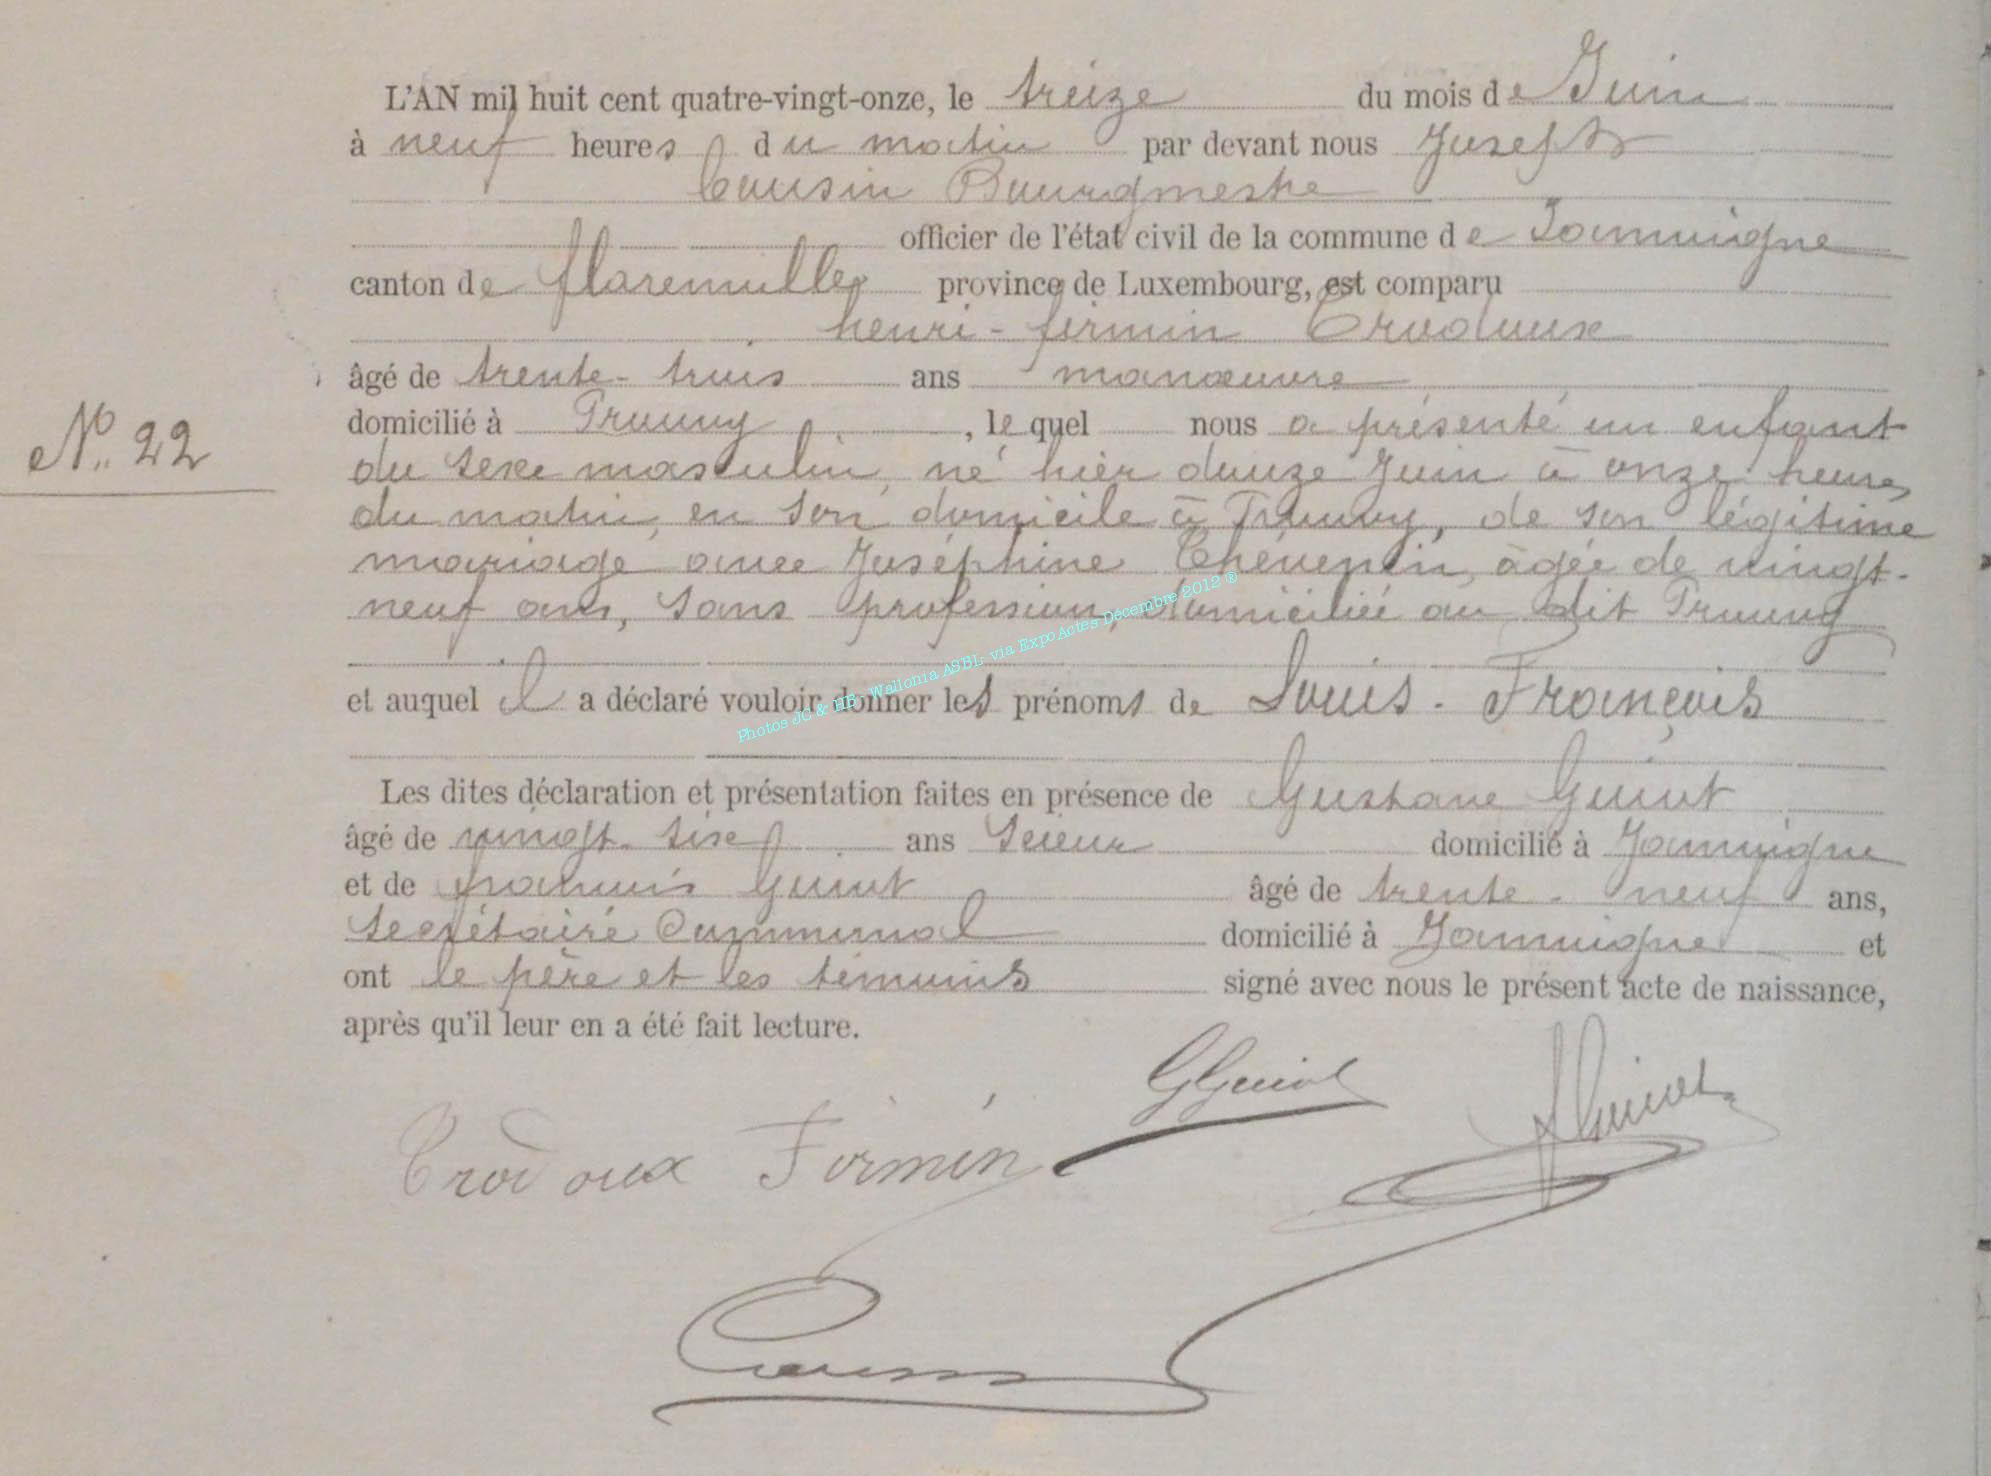 L'AN mil huit cent quatre-vingt-onze, le treize du mois de Juin
à neuf heures du matin par devant nous Joseph
Cousin Bourgmestre
officier de l'état civil de la commune de Jamoigne
canton de florenville province de Luxembourg, est comparu
henri-firmin Crodoux
âgé de trente-trois ans manœuvre
domicilié à Prouvy, lequel nous a présenté un enfant
N° 22
du sexe masculin, né hier douze Juin à onze heures
du matin, en son domicile à Prouvy, de son légitime
mariage avec Joséphine Thévenin, âgée de vingt-
neuf ans, sans profession, domiciliée au dit Prouvy
et auquel il a déclaré vouloir donner les prénoms de Louis-François
Les dites déclaration et présentation faites en présence de Gustave Guiot
âgé de vingt-six ans scieur domicilié à Jamoigne
et de françois Guiot âgé de trente-neuf ans,
secrétaire Communal domicilié à Jamoigne et
ont le père et les témoins signé avec nous le présent acte de naissance,
après qu'il leur en a été fait lecture.
GGuiot
Crodoux Firmin
Photos JC & HB - Wallonia ASBL via ExpoActes Décembre 2012 ®